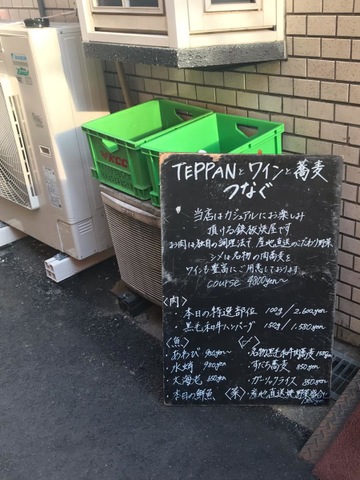 TEPPANとワインと蕎麦
つなぐ
当店はカジュアルにお楽しみ
頂ける鉄板焼屋です
お肉は独自の調理法で 産地直送のこだわり野菜
シメは名物の肉蕎麦を
ワインも豊富にご用意しております
course 4800yen〜
〈肉〉
・本日の特選部位 100g / 2,600yen
・黒毛和牛ハンバーグ 150g / 1,580yen
〈魚〉
・あわび
・水蛸 980yen
・大海老
・本日の鮮魚
〈〆〉
・名物黒毛和牛肉蕎麦
・すだち蕎麦 850yen
・ガーリックライス 850yen
〈菜〉・産地直送焼野菜盛合せ